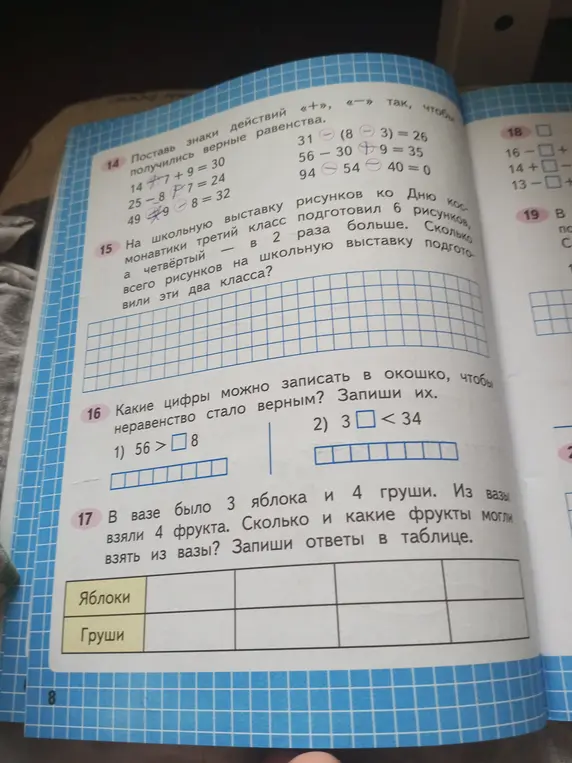 14 Поставь знаки действий «+», «−» так, чтобы
получились верные равенства.
14 + 7 + 9 = 30
25 − 8 + 7 = 24
49 − 9 − 8 = 32
31 − (8 − 3) = 26
56 − 30 + 9 = 35
94 − 54 − 40 = 0
15 На школьную выставку рисунков ко Дню кос-
монавтики третий класс подготовил 6 рисунков,
а четвёртый — в 2 раза больше. Сколько
всего рисунков на школьную выставку подгото-
вили эти два класса?
16 Какие цифры можно записать в окошко, чтобы
неравенство стало верным? Запиши их.
1) 56 > □ 8
2) 3 □ < 34
17 В вазе было 3 яблока и 4 груши. Из вазы
взяли 4 фрукта. Сколько и какие фрукты могли
взять из вазы? Запиши ответы в таблице.
Яблоки
Груши
8
18 □
16 − □ +
14 + □ −
13 − □ +
19 В